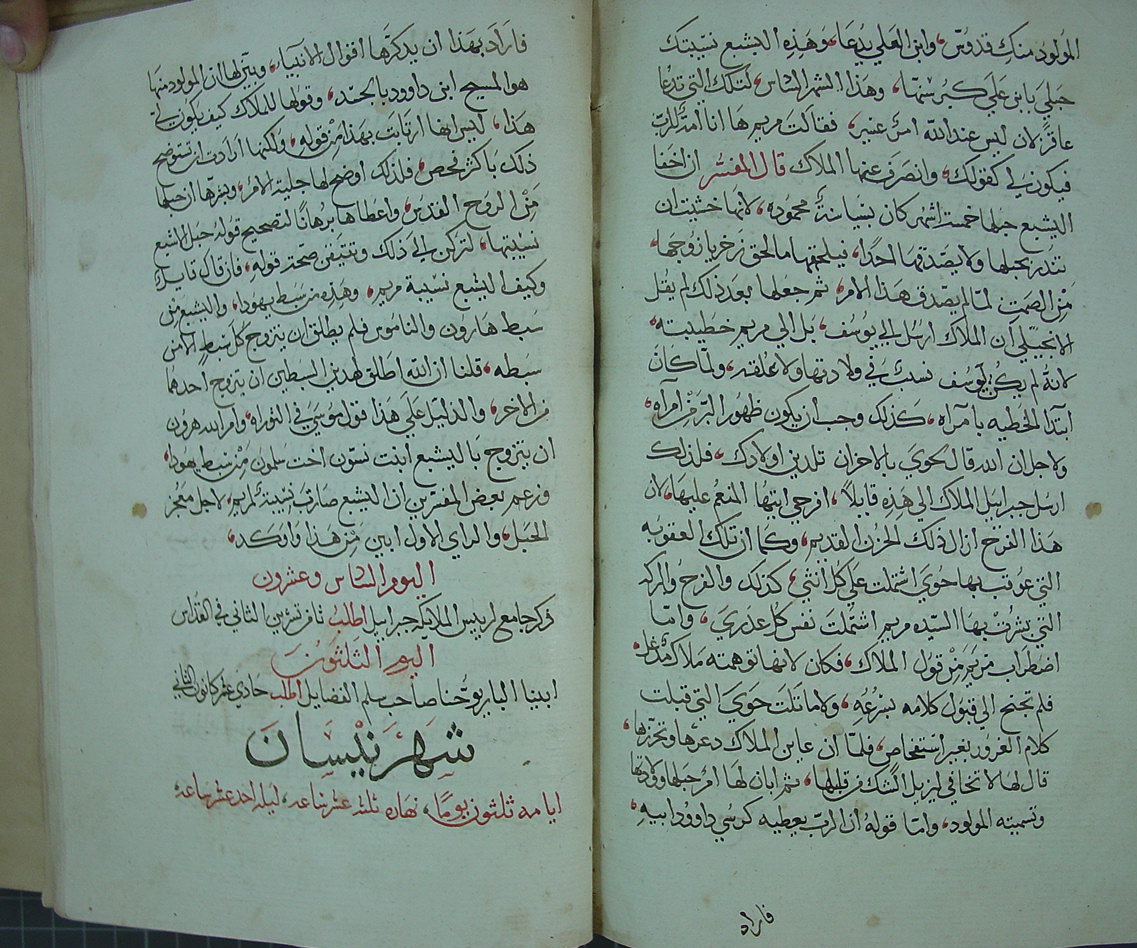 المولود منك قدوس، وابن العلي يدعا، وهذه اليشبع نسيبتك
حبلي بابن علي كبر سنها، وهذا الشهر السادس لتلك التي تدعا
عاقرًا لان ليس عند الله امرًا عسير، فقالت مريم ها انا امة للرب
فيكون لي كقولك، وانصرف عنها الملاك قال المفسر ان اخفا
اليشبع حبلها خمسة اشهر كان بسياسة محموده، لانها خشيت ان
تنذر بحبلها ولا يصدقها احدًا، فيلحقها ما لحق زخريا زوجها،
من الصمت لما لم يصدق هذا الامر، ثم جعلها بعد ذلك لم يقل
الانجيلي ان الملاك ارسل الي يوسف، بل الي مريم خطيبته،
لانه لم يكن ليوسف نسب في ولادتها ولا علقه، ولما كان
ابتدا الخطيه بامرآه، كذلك وجب ان يكون ظهور البر من امرآه،
ولاجل ان الله قال لحوي بالاحزان تلدين اولادك، فلذلك
ارسل جبراييل الملاك الي هذه قايلاً، افرحي ايتها المنعم عليها، لان
هذا الفرح ازال ذلك الحزن القديم، وكما ان تلك العقوبه
التي عوقب بها حوي اشتملت علي كل انثي، كذلك والفرح والبركه
التي بشرت بها السيده مريم اشتملت نفس كل عذري، واما
اضطراب مريم من قول الملاك، فكان لانها توهمته ملاك مدغل،
فلم تجنح الي قبول كلامه بسرعه، ولا ماثلت حوي التي قبلت
كلام الغرور بغير استفحاص، فلما ان عاين الملاك دعرها وتحرزها،
قال لها لا تخافي ليزيل الشك من قلبها، ثم ابان لها امر حبلها وولادتها
وتسميته المولود، واما قوله ان الرب يعطيه كرسي داوود ابيه،
فاراد
فاراد بهذا ان يدكرها اقوال الانبيآء، ويبين لها ان المولود منها
هو المسيح ابن داوود بالجسد، وقولها للملاك كيف يكون لي
هذا، ليس انها ارتابت بهذا من قوله، ولكنها ارادت ان تستوضح
ذلك باكثر فحص، فلذلك اوضح لها جلية الامر، وبشرها ان حبلها
من الروح القدس، واعطاها برهانًا لتصحيح قوله حبل اليشبع
نسيبتها، لتركن الي ذلك وتتيقن صحة قوله، فان قال قايلاً
وكيف اليشبع نسيبة مريم، وهذه من سبط يهودا، واليشبع من
سبط هارون والناموس فلم يطلق ان يتزوج كل سبط الا من
سبطه، قلنا ان الله اطلق لهدين السبطين ان يتزوج احدهما
من الاخر، والدليل علي هذا قول موسي في التوراه، وامر الله هرون
ان يتزوج باليشبع ابنت نسون اخت سلمون من سبط يهودا،
وزعم بعض المفسرين ان اليشبع صارت نسيبة لمريم، لاجل معجز
الحبل، والراي الاول ابين من هذا واوكد،
اليوم السادس وعشرون
ذكر جامع لرييس الملايكه جبراييل اطلب ثامن تشرين الثاني في القداس
اليوم الثلثون
ابينا البار يوحنا صاحب سلم الفضايل اطلب حادي عشر كانون الثاني
شهر نيسان
ايامه ثلثون يومًا، نهاره ثلثه عشر ساعه، ليله احد عشر ساعه